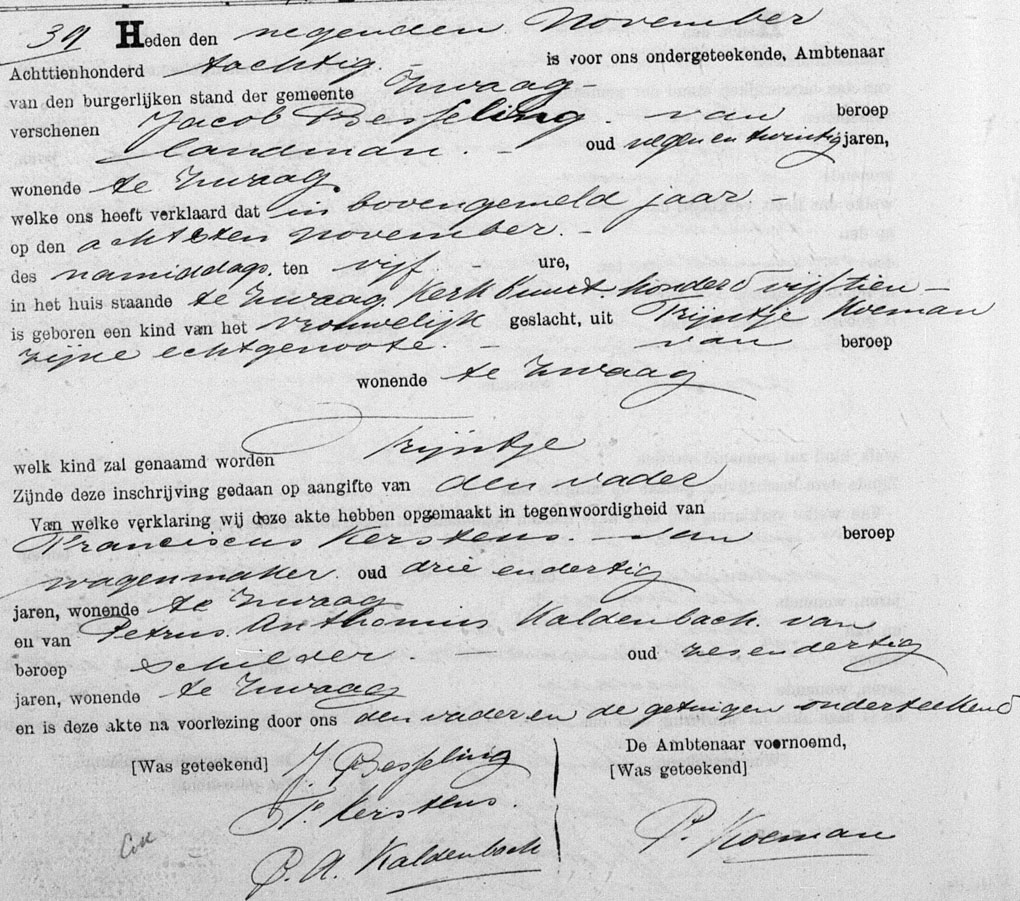 39 Heden den negenden November
Achttienhonderd tachtig. is voor ons ondergeteekende, Ambtenaar
van den burgerlijken stand der gemeente Zwaag
verschenen Jacob Besseling. van beroep
landman. - oud negen en twintig jaren,
wonende te Zwaag
welke ons heeft verklaard dat in bovengemeld jaar -
op den achtsten November. -
des namiddags. ten vijf ure,
in het huis staande te Zwaag, Kerk buurt. honderd vijftien -
is geboren een kind van het vrouwelijk geslacht, uit Trijntje Koeman
zijne echtgenoote. - van beroep
wonende te Zwaag
welk kind zal genaamd worden Trijntje
Zijnde deze inschrijving gedaan op aangifte van den vader
Van welke verklaring wij deze akte hebben opgemaakt in tegenwoordigheid van
Franciscus Kerstens. - van beroep
wagenmaker. oud drie en dertig
jaren, wonende te Zwaag
en van Petrus Anthonius Kaldenbach. van
beroep schilder. oud zes en dertig
jaren, wonende te Zwaag
en is deze akte na voorlezing door ons den vader en de getuigen onderteekend
De Ambtenaar voernoemd,
[Was geteekend] J. Besseling [Was geteekend]
Fs. Kerstens.
P. Koeman
P. A. Kaldenbach